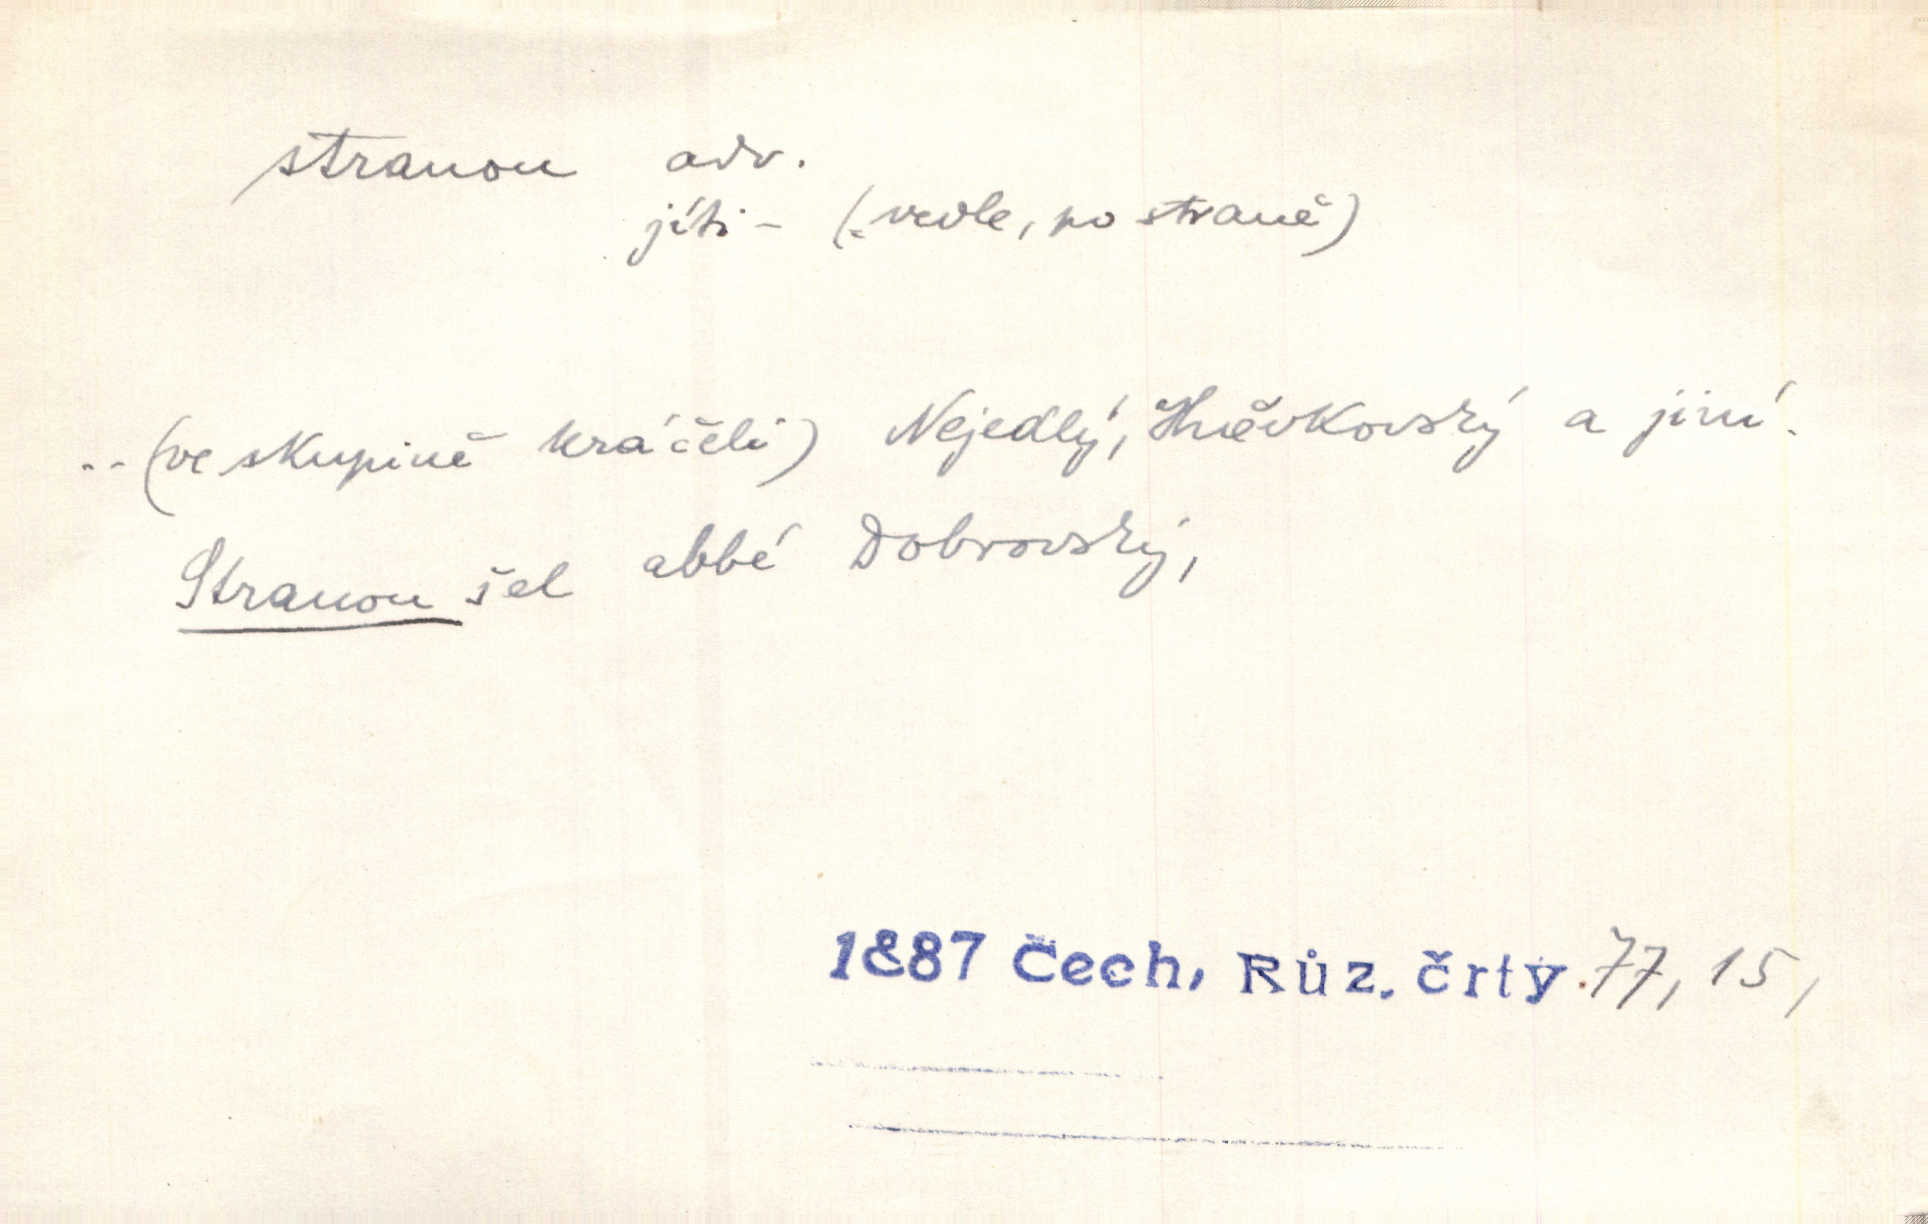 stranou adv.
jíti - (: vedle, po straně)
.. (ve skupině kráčeli) Nejedlý, Hněvkovský a jiní.
Stranou šel abbé Dobrovský,
1887 Čech, Růz. črty. 77, 15,